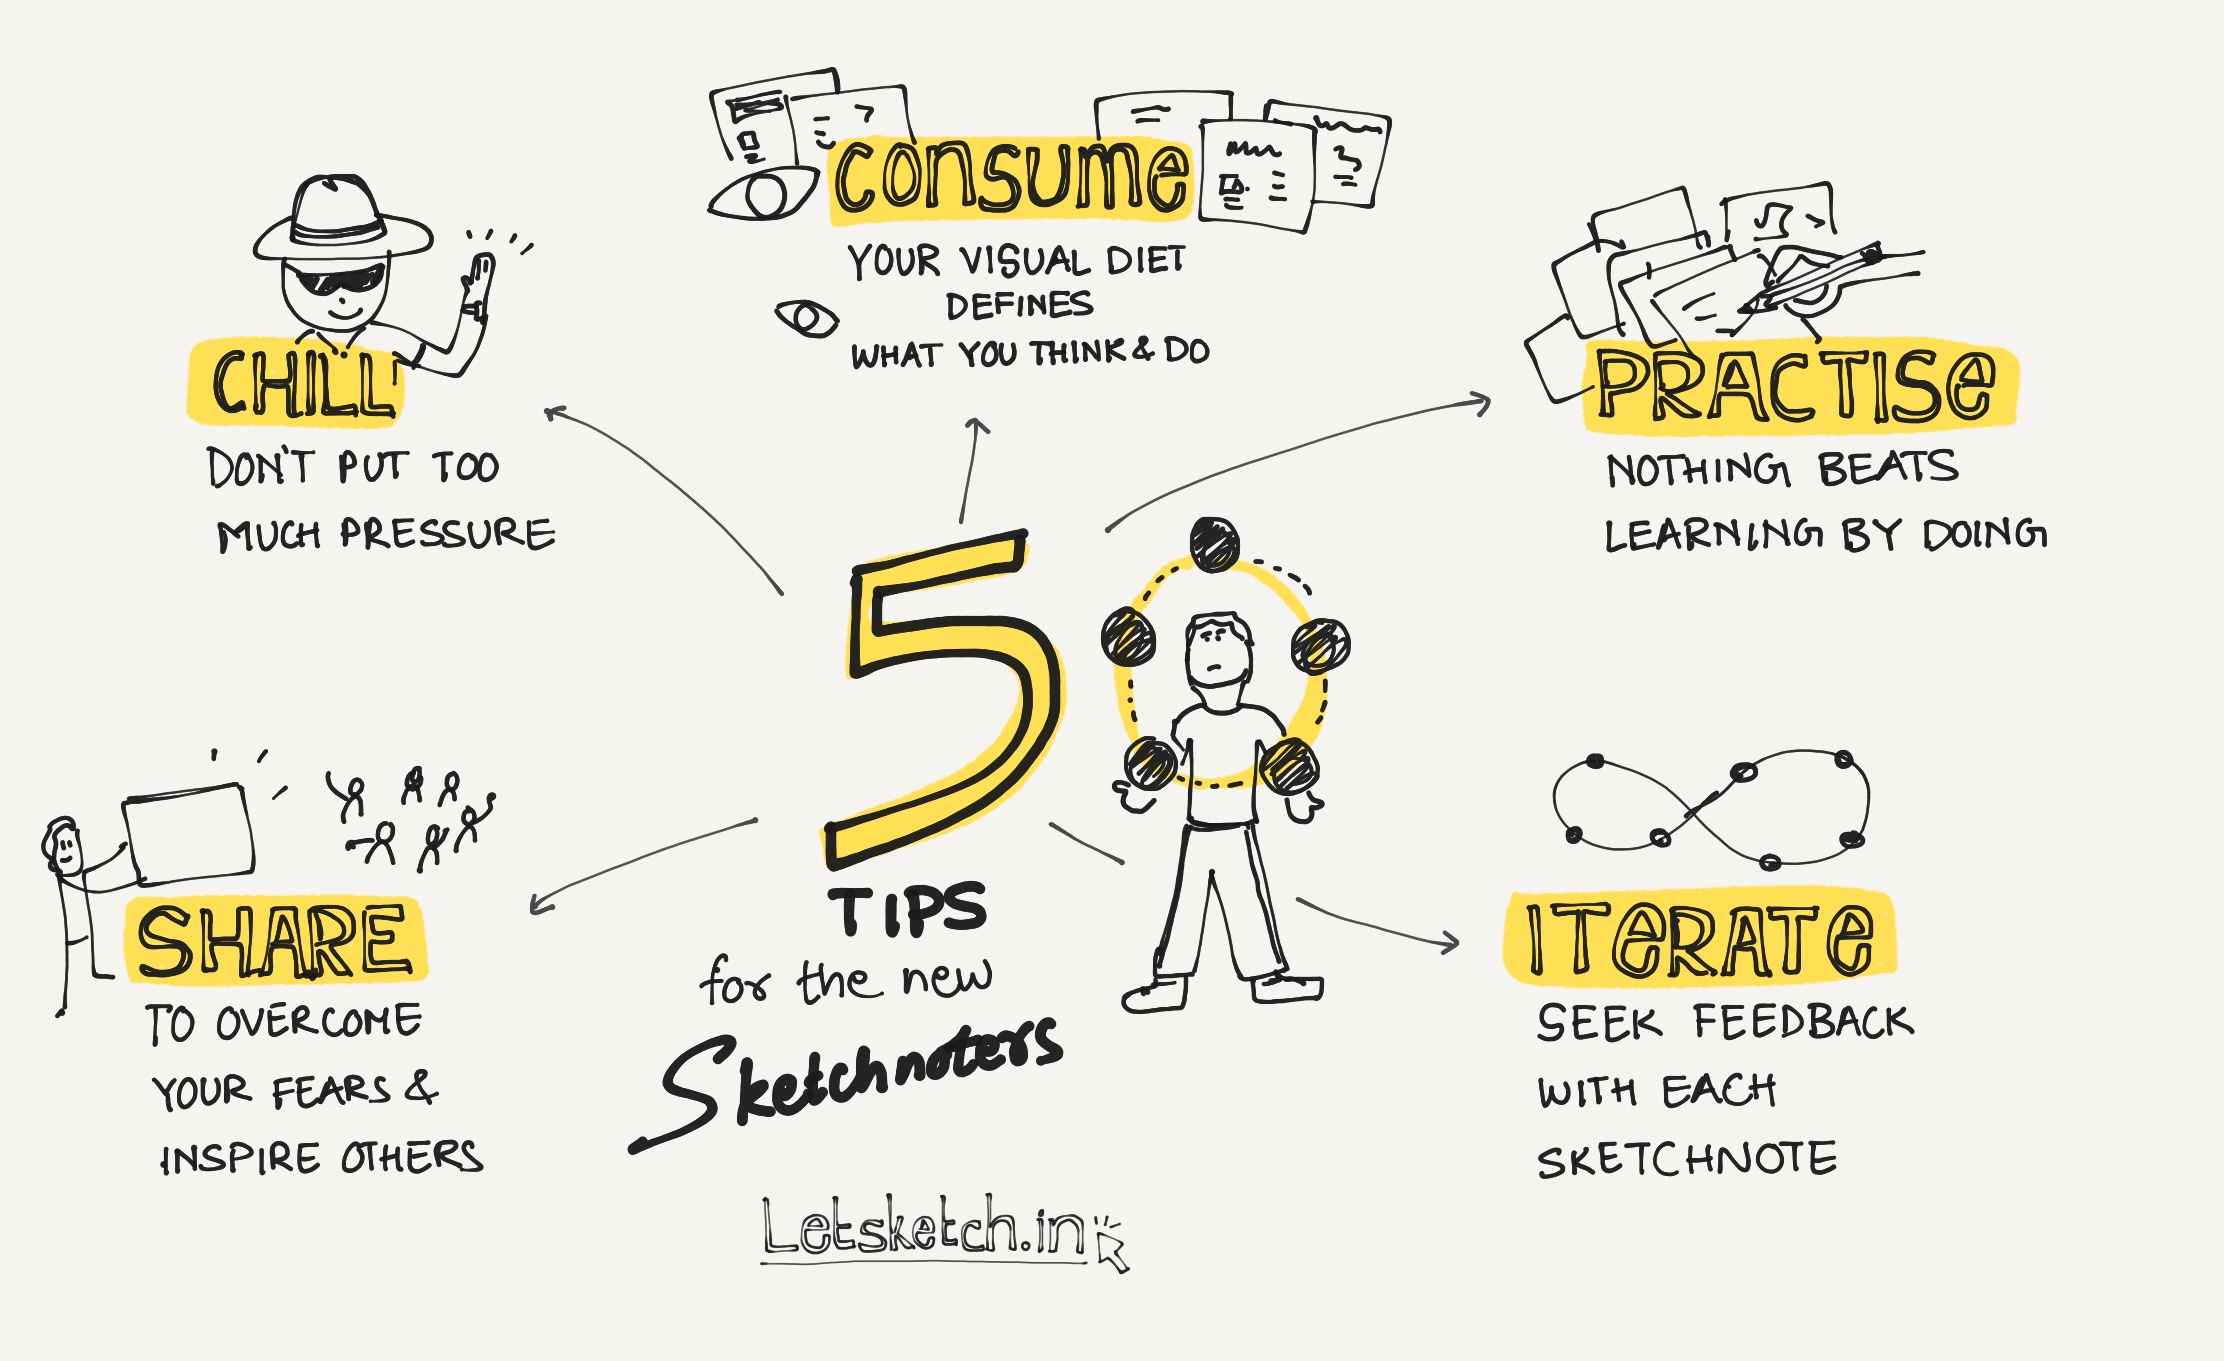 CONSUME
YOUR VISUAL DIET
DEFINES
WHAT YOU THINK & DO
CHILL
DON'T PUT TOO
MUCH PRESSURE
PRACTISE
NOTHING BEATS
LEARNING BY DOING
5
TIPS
for the new
Sketchnoters
SHARE
TO OVERCOME
YOUR FEARS &
INSPIRE OTHERS
ITERATE
SEEK FEEDBACK
WITH EACH
SKETCHNOTE
Letsketch.in